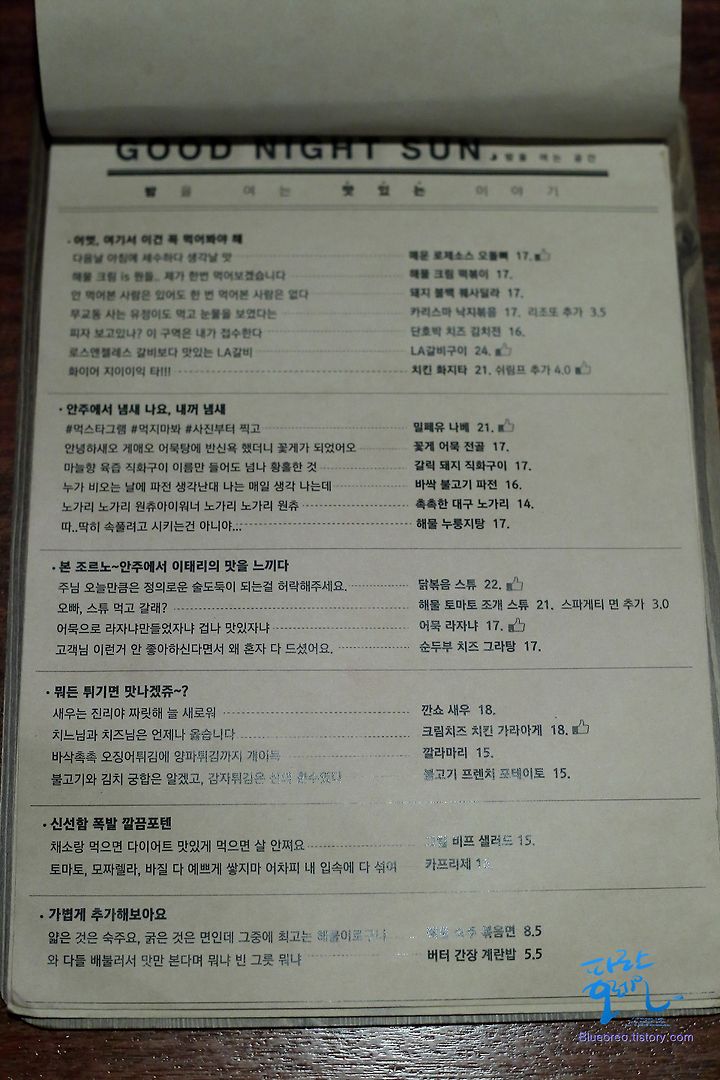 GOOD NIGHT SUN, 밤을 여는 공간
밤을 여는 맛있는 이야기
· 어멋, 여기서 이건 꼭 먹어봐야 해
다음날 아침에 세수하다 생각날 맛 매운 로제소스 오돌뼈 17.
해물 크림 is 뭔들.. 제가 한번 먹어보겠습니다 해물 크림 떡볶이 17.
안 먹어본 사람은 있어도 한 번 먹어본 사람은 없다 돼지 불백 퀘사딜라 17.
무교동 사는 유정이도 먹고 눈물을 보였다는 카리스마 낙지볶음 17. 리조또 추가 3.5
피자 보고있나? 이 구역은 내가 접수한다 단호박 치즈 김치전 16.
로스앤젤레스 갈비보다 맛있는 LA갈비 LA갈비구이 24.
화이어 지이이익 타!!! 치킨 화지타 21. 쉬림프 추가 4.0
· 안주에서 냄새 나요, 내꺼 냄새
#먹스타그램 #먹지마봐 #사진부터 찍고 밀페유 나베 21.
안녕하새오 게애오 어묵탕에 반신욕 했더니 꽃게가 되었어오 꽃게 어묵 전골 17.
마늘향 육즙 직화구이 이름만 들어도 넘나 황홀한 것 갈릭 돼지 직화구이 17.
누가 비오는 날에 파전 생각난대 나는 매일 생각 나는데 바싹 불고기 파전 16.
노가리 노가리 원츄아이워너 노가리 노가리 원츄 촉촉한 대구 노가리 14.
따..딱히 속풀려고 시키는건 아니야... 해물 누룽지탕 17.
· 본 조르노~안주에서 이태리의 맛을 느끼다
주님 오늘만큼은 정의로운 술도둑이 되는걸 허락해주세요. 닭볶음 스튜 22.
오빠, 스튜 먹고 갈래? 해물 토마토 조개 스튜 21. 스파게티 면 추가 3.0
어묵으로 라자냐만들었자냐 겁나 맛있자냐 어묵 라자냐 17.
고객님 이런거 안 좋아하신다면서 왜 혼자 다 드셨어요. 순두부 치즈 그라탕 17.
· 뭐든 튀기면 맛나겠쥬~?
새우는 진리야 짜릿해 늘 새로워 깐쇼 새우 18.
치느님과 치즈님은 언제나 옳습니다 크림치즈 치킨 가라아게 18.
바삭촉촉 오징어튀김에 양파튀김까지 개이득 깔라마리 15.
불고기와 김치 궁합은 알겠고, 감자튀김은 신의 한수였다 불고기 프렌치 포테이토 15.
· 신선함 폭발 깔끔포텐
채소랑 먹으면 다이어트 맛있게 먹으면 살 안쪄요 비프 샐러드 15.
토마토, 모짜렐라, 바질 다 예쁘게 쌓지마 어차피 내 입속에 다 섞여 카프리제
· 가볍게 추가해보아요
얇은 것은 숙주요, 굵은 것은 면인데 그중에 최고는 해물이로구나 숙주 볶음면 8.5
와 다들 배불러서 맛만 본다며 뭐냐 빈 그릇 뭐냐 버터 간장 계란밥 5.5
파랑오레오
Blueoreo.tistory.com